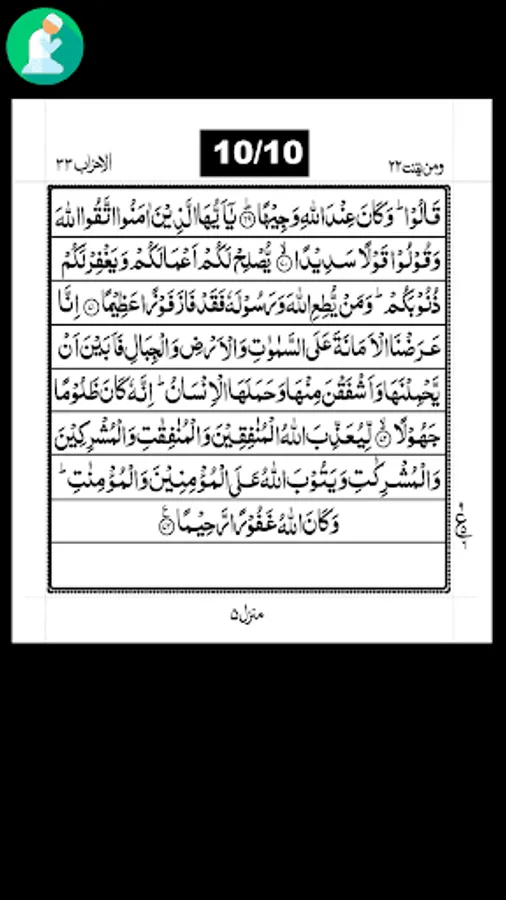 10/10
ومن یقنت ۲۲
الاحزاب ۳۳
قَالُوْاؕ وَكَانَ عِنْدَ اللّٰهِ وَجِیْهًا۝۶۹ یٰۤاَیُّهَا الَّذِیْنَ اٰمَنُوا اتَّقُوا اللّٰهَ
وَقُوْلُوْا قَوْلًا سَدِیْدًا۝۷۰ۙ یُّصْلِحْ لَكُمْ اَعْمَالَكُمْ وَیَغْفِرْ لَكُمْ
ذُنُوْبَكُمْؕ وَمَنْ یُّطِعِ اللّٰهَ وَرَسُوْلَهٗ فَقَدْ فَازَ فَوْزًا عَظِیْمًا۝۷۱ اِنَّا
عَرَضْنَا الْاَمَانَةَ عَلَی السَّمٰوٰتِ وَالْاَرْضِ وَالْجِبَالِ فَاَبَیْنَ اَنْ
یَّحْمِلْنَهَا وَاَشْفَقْنَ مِنْهَا وَحَمَلَهَا الْاِنْسَانُؕ اِنَّهٗ كَانَ ظَلُوْمًا
جَهُوْلًا۝۷۲ۙ لِّیُعَذِّبَ اللّٰهُ الْمُنٰفِقِیْنَ وَالْمُنٰفِقٰتِ وَالْمُشْرِكِیْنَ
وَالْمُشْرِكٰتِ وَیَتُوْبَ اللّٰهُ عَلَی الْمُؤْمِنِیْنَ وَالْمُؤْمِنٰتِؕ
وَكَانَ اللّٰهُ غَفُوْرًا رَّحِیْمًا۝۷۳
منزل ۵